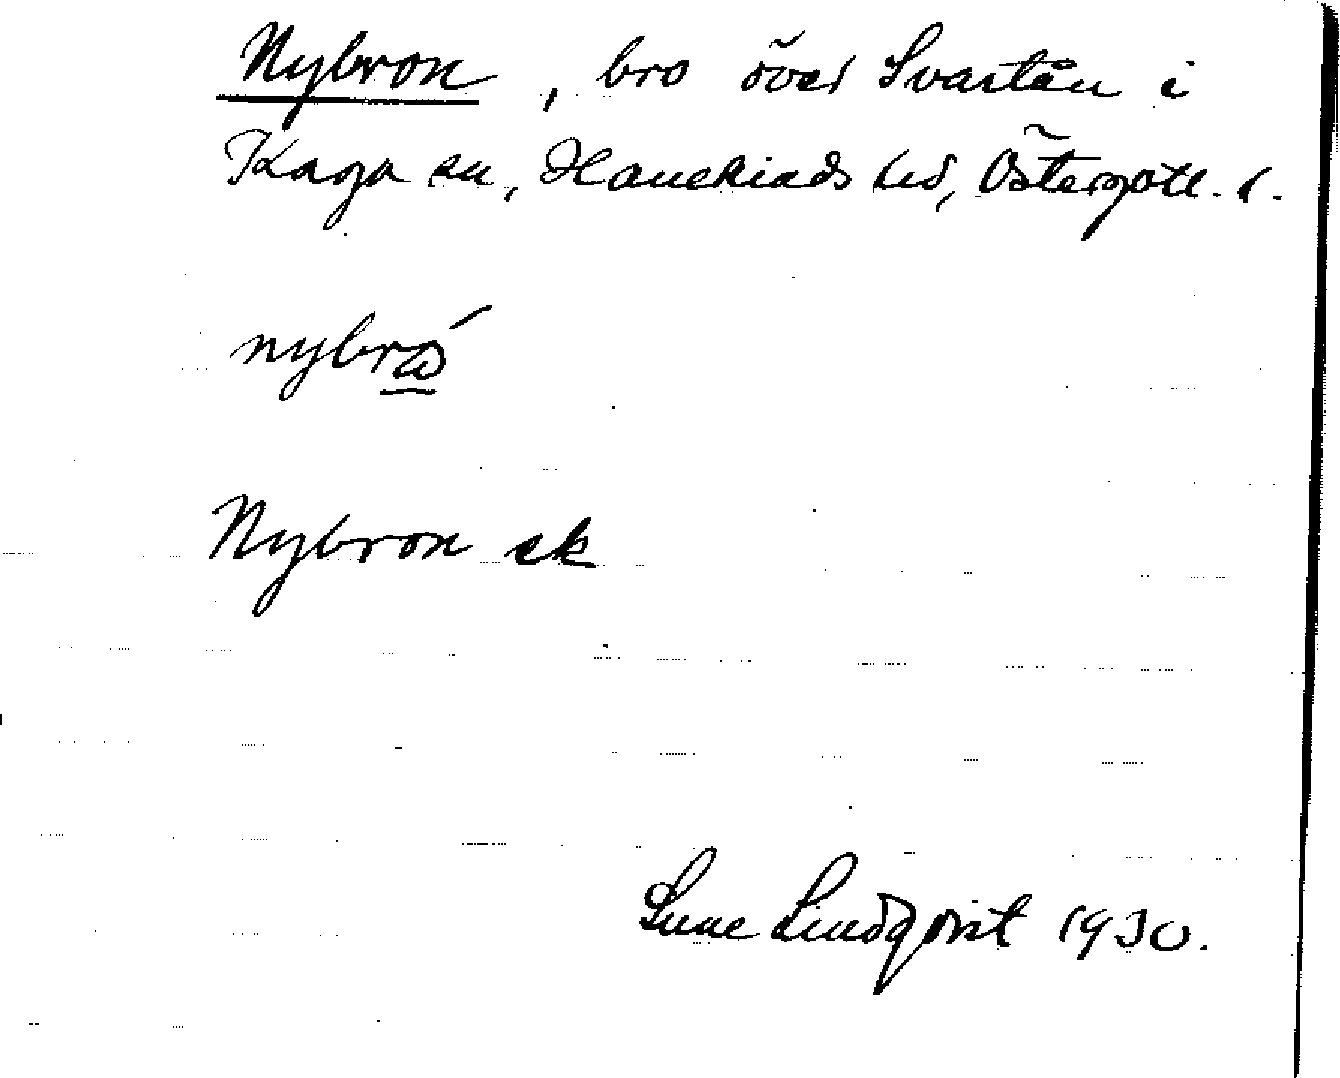 Nybron, bro över Svartån i
Kaga sn, Hanekinds hd, Östergötl. l.
nybró
Nybron ek
Sune Lindqvist 1930.